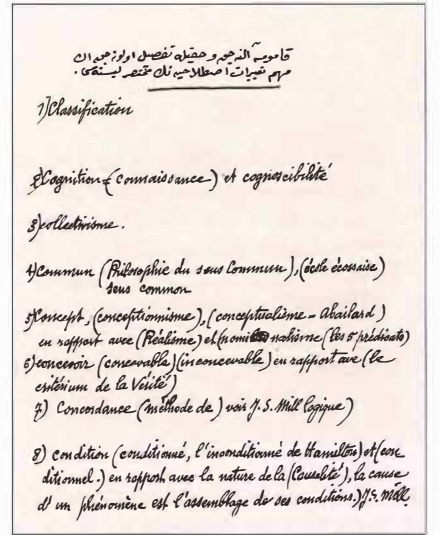 قاموسه آلنه‌جق و حقيله تفصيل اولونه‌جق اك
مهم تعبيرات اصطلاحيه‌نك مختصر ليسته‌سى.
1) Classification
2) Cognition = (connaissance) et cognoscibilité
3) collectivisme.
4) Commun (Philosophie du sens Commun), (école écossaise)
sens common
5) Concept, (conceptionnisme), (conceptualisme - abailard)
en rapport avec (Réalisme) et (nominalisme (les 5 prédicats)
6) concevoir (concevable) (inconcevable) en rapport ave (le
critérium de la Vérité)
7) Concordance (méthode de) voir J.S. Mill logique)
8) condition (conditionné, l'inconditionné de Hamilton) et (con
ditionnel.) en rapport avec la nature de la (Causalité), la cause
d'un phénomène est l'assemblage de ses conditions.) J.S. Mill